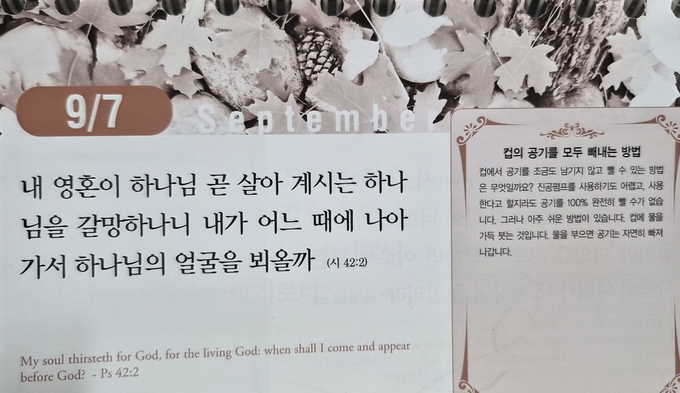 9/7
September
내 영혼이 하나님 곧 살아 계시는 하나
님을 갈망하나니 내가 어느 때에 나아
가서 하나님의 얼굴을 뵈올까 (시 42:2)
My soul thirsteth for God, for the living God: when shall I come and appear
before God? - Ps 42:2
컵의 공기를 모두 빼내는 방법
컵에서 공기를 조금도 남기지 않고 뺄 수 있는 방법
은 무엇일까요? 진공펌프를 사용하기도 어렵고, 사용
한다고 할지라도 공기를 100% 완전히 뺄 수가 없습
니다. 그러나 아주 쉬운 방법이 있습니다. 컵에 물을
가득 붓는 것입니다. 물을 부으면 공기는 자연히 빠져
나갑니다.